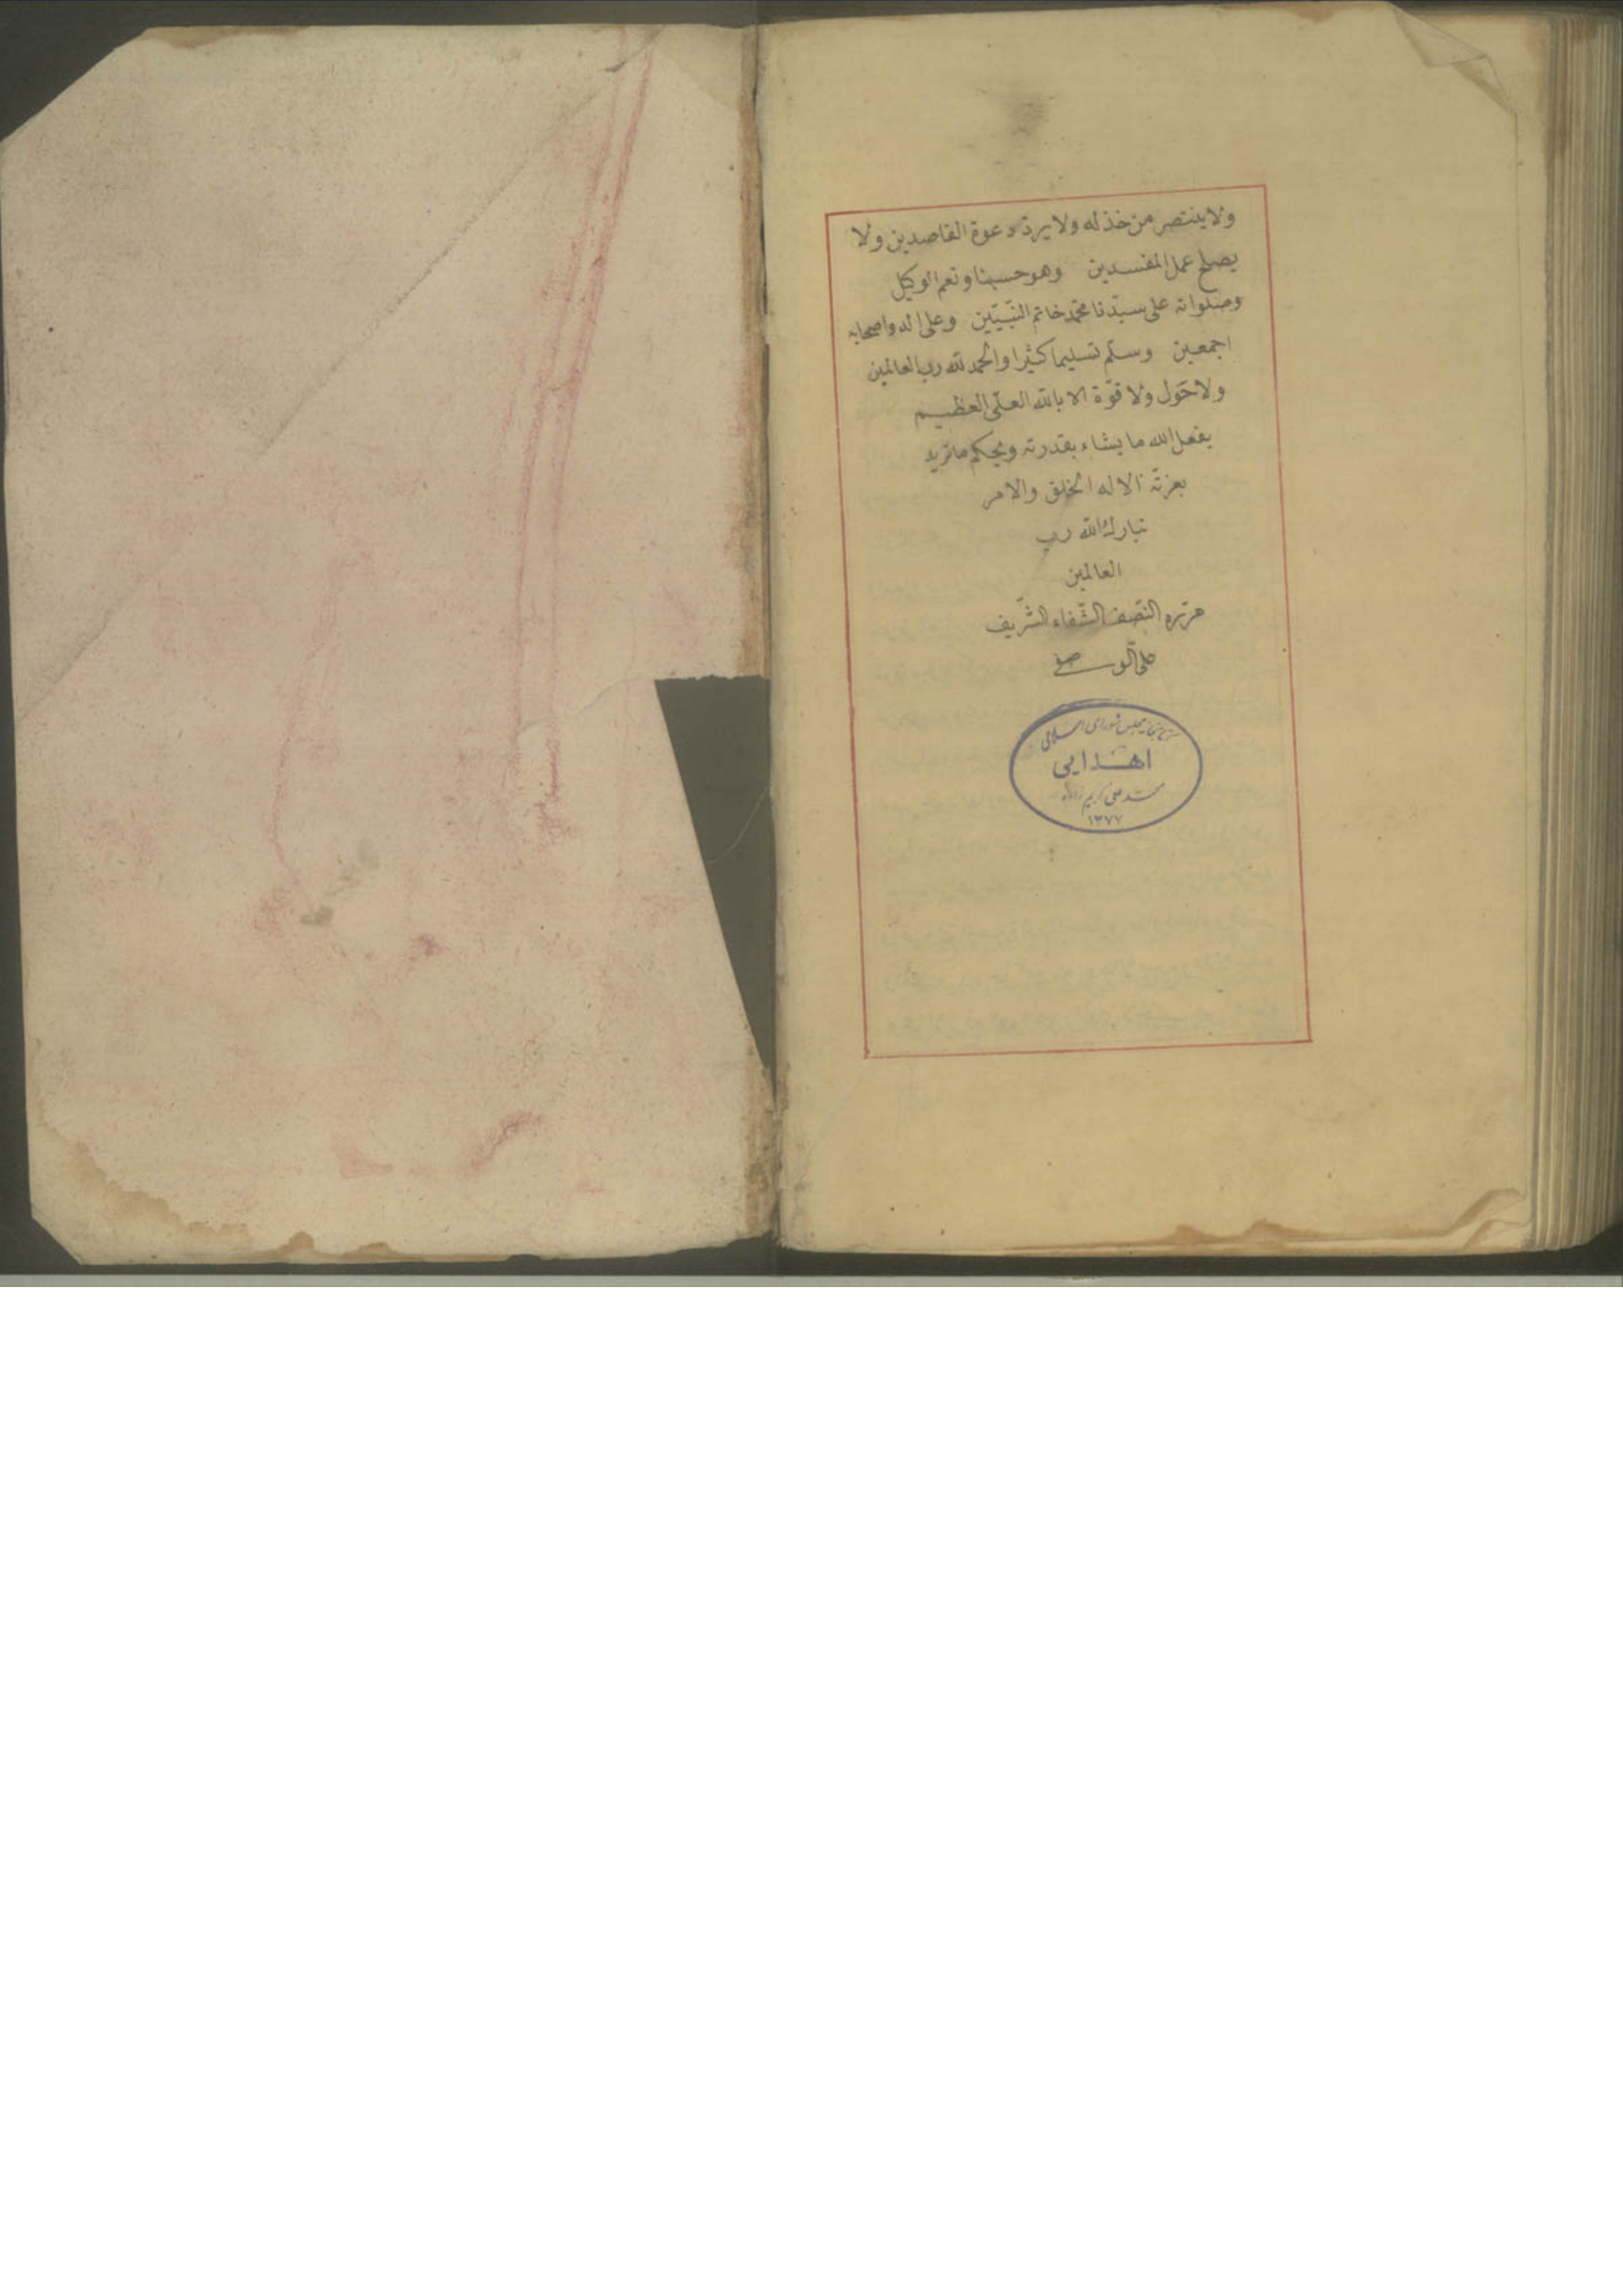 ولا ينتصر من خذله ولا يردّ دعوة القاصدين ولا
يصلح عمل المفسدين وهو حسبنا ونعم الوكيل
وصلواته على سيّدنا محمّد خاتم النّبيّين وعلى اله واصحابه
اجمعين وسلّم تسليما كثيرا والحمد لله رب العالمين
ولا حَول ولا قوّة الا بالله العلّى العظيم
يفعل الله ما يشاء بقدرته ويحكم ما تريد
بعزتّه الا له الخلق والامر
تبارك الله رب
العالمين
النّصف الشّفاء الشّريف
مجلس شورای اسلامی
اهدایی
محمد علی کریم زاده
۱۳۷۷